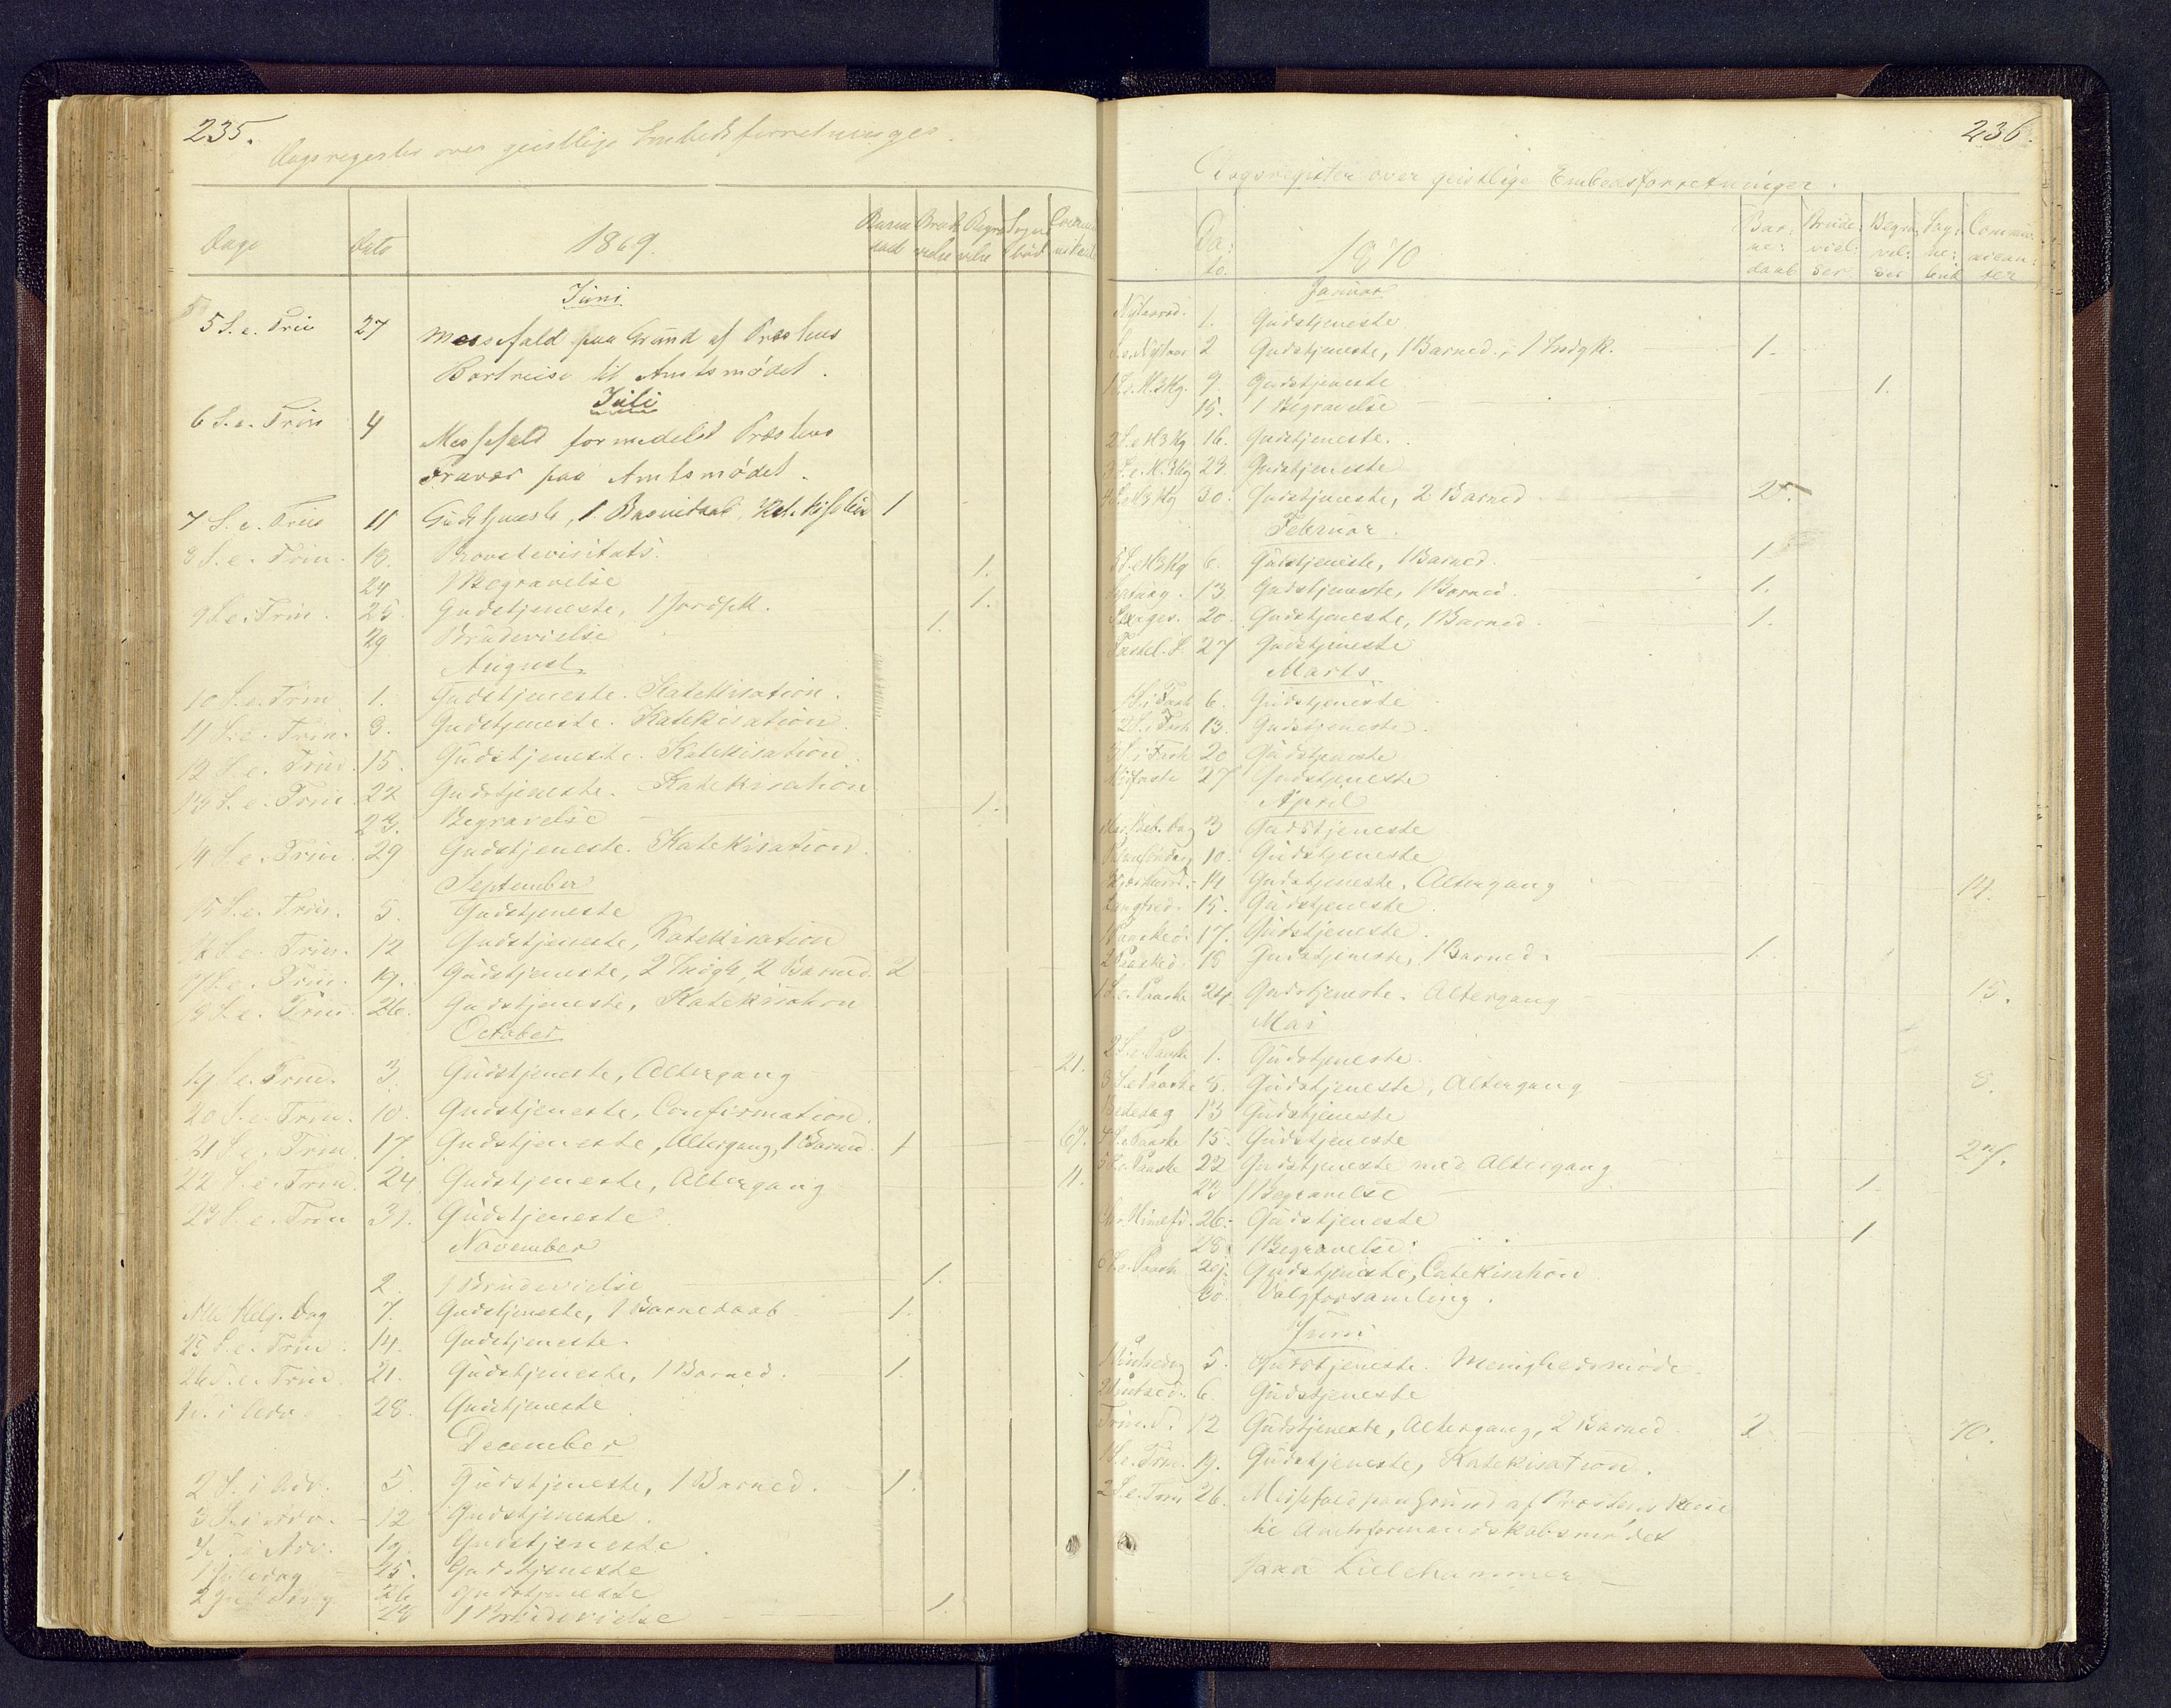 235.
Dagsregister over geistlige Embedsforretninger.
Dage Dato 1869. Barne daab Brude vielse Begra velse Sogne bud Commu nikant
Juni
5 S. e. Trin 27 Messefald paa Grund af Præstens
Bortreise til Amtsmødet.
Juli
6 S. e. Trin 4 Messefald formedelst Præstens
Fravær paa Amtsmødet.
7 S. e. Trin 11 Gudstjeneste, 1 Barnedaab, 1
8 S. e. Trin. 18. Provstevisitats.
24 1 Begravelse 1.
9 S. e. Trin. 25. Gudstjeneste, 1 Jordfk. 1.
29 Brudevielse 1.
August
10 S. e. Trin 1. Gudstjeneste. Katekisation.
11 S. e. Trin. 8. Gudstjeneste. Katekisation.
12 S. e. Trin. 15. Gudstjeneste. Katekisation.
13 S. e. Trin 22 Gudstjeneste. Katekisation
23. Begravelse 1.
14 S. e. Trin. 29 Gudstjeneste. Katekisation.
September
15 S. e. Trin. 5. Gudstjeneste
16 S. e. Trin. 12 Gudstjeneste, Katekisation
17 S. e. Trin. 19. Gudstjeneste, 2 Indgk, 2 Barned. 2
18 S. e. Trin. 26. Gudstjeneste, Katekisation
October
19 S. e. Trin. 3. Gudstjeneste, Altergang 21.
20 S. e. Trin. 10. Gudstjeneste, Confirmation.
21 S. e. Trin. 17. Gudstjeneste, Altergang, 1 Barned. 1 67.
22 S. e. Trin. 24. Gudstjeneste, Altergang 11.
23 S. e. Trin 31. Gudstjeneste.
November
2. 1 Brudevielse 1.
Alle Helg. Dag 7. Gudstjeneste, 1 Barnedaab 1.
25 S. e. Trin. 14. Gudstjeneste.
26 S. e. Trin. 21. Gudstjeneste, 1 Barned. 1.
1 S. i Adv. 28. Gudstjeneste
December
2 S. i Adv. 5. Gudstjeneste, 1 Barned. 1.
3 S. i Adv. 12 Gudstjeneste.
4 S. i Adv. 19. Gudstjeneste.
1 Juledag 25. Gudstjeneste
2 Juledag 26 Gudstjeneste
28 1 Brudevielse 1.
236.
Dagsregister over geistlige Embedsforretninger.
Da: to. 1870 Bar: ne: daab Brude: viel: ser Begra: vel: ser Sog: ne: bud Commu: nican: ter
Januar
Nytaarsd. 1. Gudstjeneste.
S. e. Nytaar 2 Gudstjeneste, 1 Barned., 1 Indgk. 1.
1 S. e. H. 3 Kg. 9. Gudstjeneste
15. 1 Begravelse 1.
2 S. e H 3 Kg. 16. Gudstjeneste.
3 S. e. H. 3 Kg 23. Gudstjeneste
4 S. e H 3 Kg 30. Gudstjeneste, 2 Barned. 2.
Februar.
5 S. e H 3 Kg 6. Gudstjeneste, 1 Barned. 1
Septuag. 13 Gudstjeneste, 1 Barned. 1.
Sexages. 20. Gudstjeneste, 1 Barned. 1.
Fastel. S. 27 Gudstjeneste
Marts
1 S. i Fast 6. Gudstjeneste
2 S. i Fast 13. Gudstjeneste.
3 S. i Fast 20 Gudstjeneste
Midfaste 27 Gudstjeneste
April
Mar. Beb. Dag 3 Gudstjeneste
Palmesøndag 10. Gudstjeneste
Skjærthorsd. 14 Gudstjeneste, Altergang 14.
Langfred. 15. Gudstjeneste.
1 Paasked. 17. Gudstjeneste.
2 Paasked. 18 Gudstjeneste, 1 Barned. 1.
1 S. e. Paaske 24 Gudstjeneste. Altergang 15.
Mai
2 S. e. Paaske 1. Gudstjeneste.
3 S. e Paaske 8. Gudstjeneste, Altergang 8.
Bededag 13 Gudstjeneste
4 S. e. Paaske 15. Gudstjeneste
5 S. e. Paaske 22 Gudstjeneste med Altergang 27.
23 1 Begravelse 1.
Chr. Himelfd. 26. Gudstjeneste
28. 1 Begravelse. 1
6 S. e. Paaske 29. Gudstjeneste, Catekisation
30. Valgforsamling.
Juni
1 Pintsedag 5. Gudstjeneste. Menighedsmøde.
2 Pintsed. 6. Gudstjeneste
Trin. S. 12 Gudstjeneste, Altergang, 2 Barned 2 70.
1 S. e. Trin. 19. Gudstjeneste, Katekisation.
2 S. e. Trin 26. Messefald paa Grund af Præstens Reise
til Amtsformandskabsmødet
paa Lillehammer